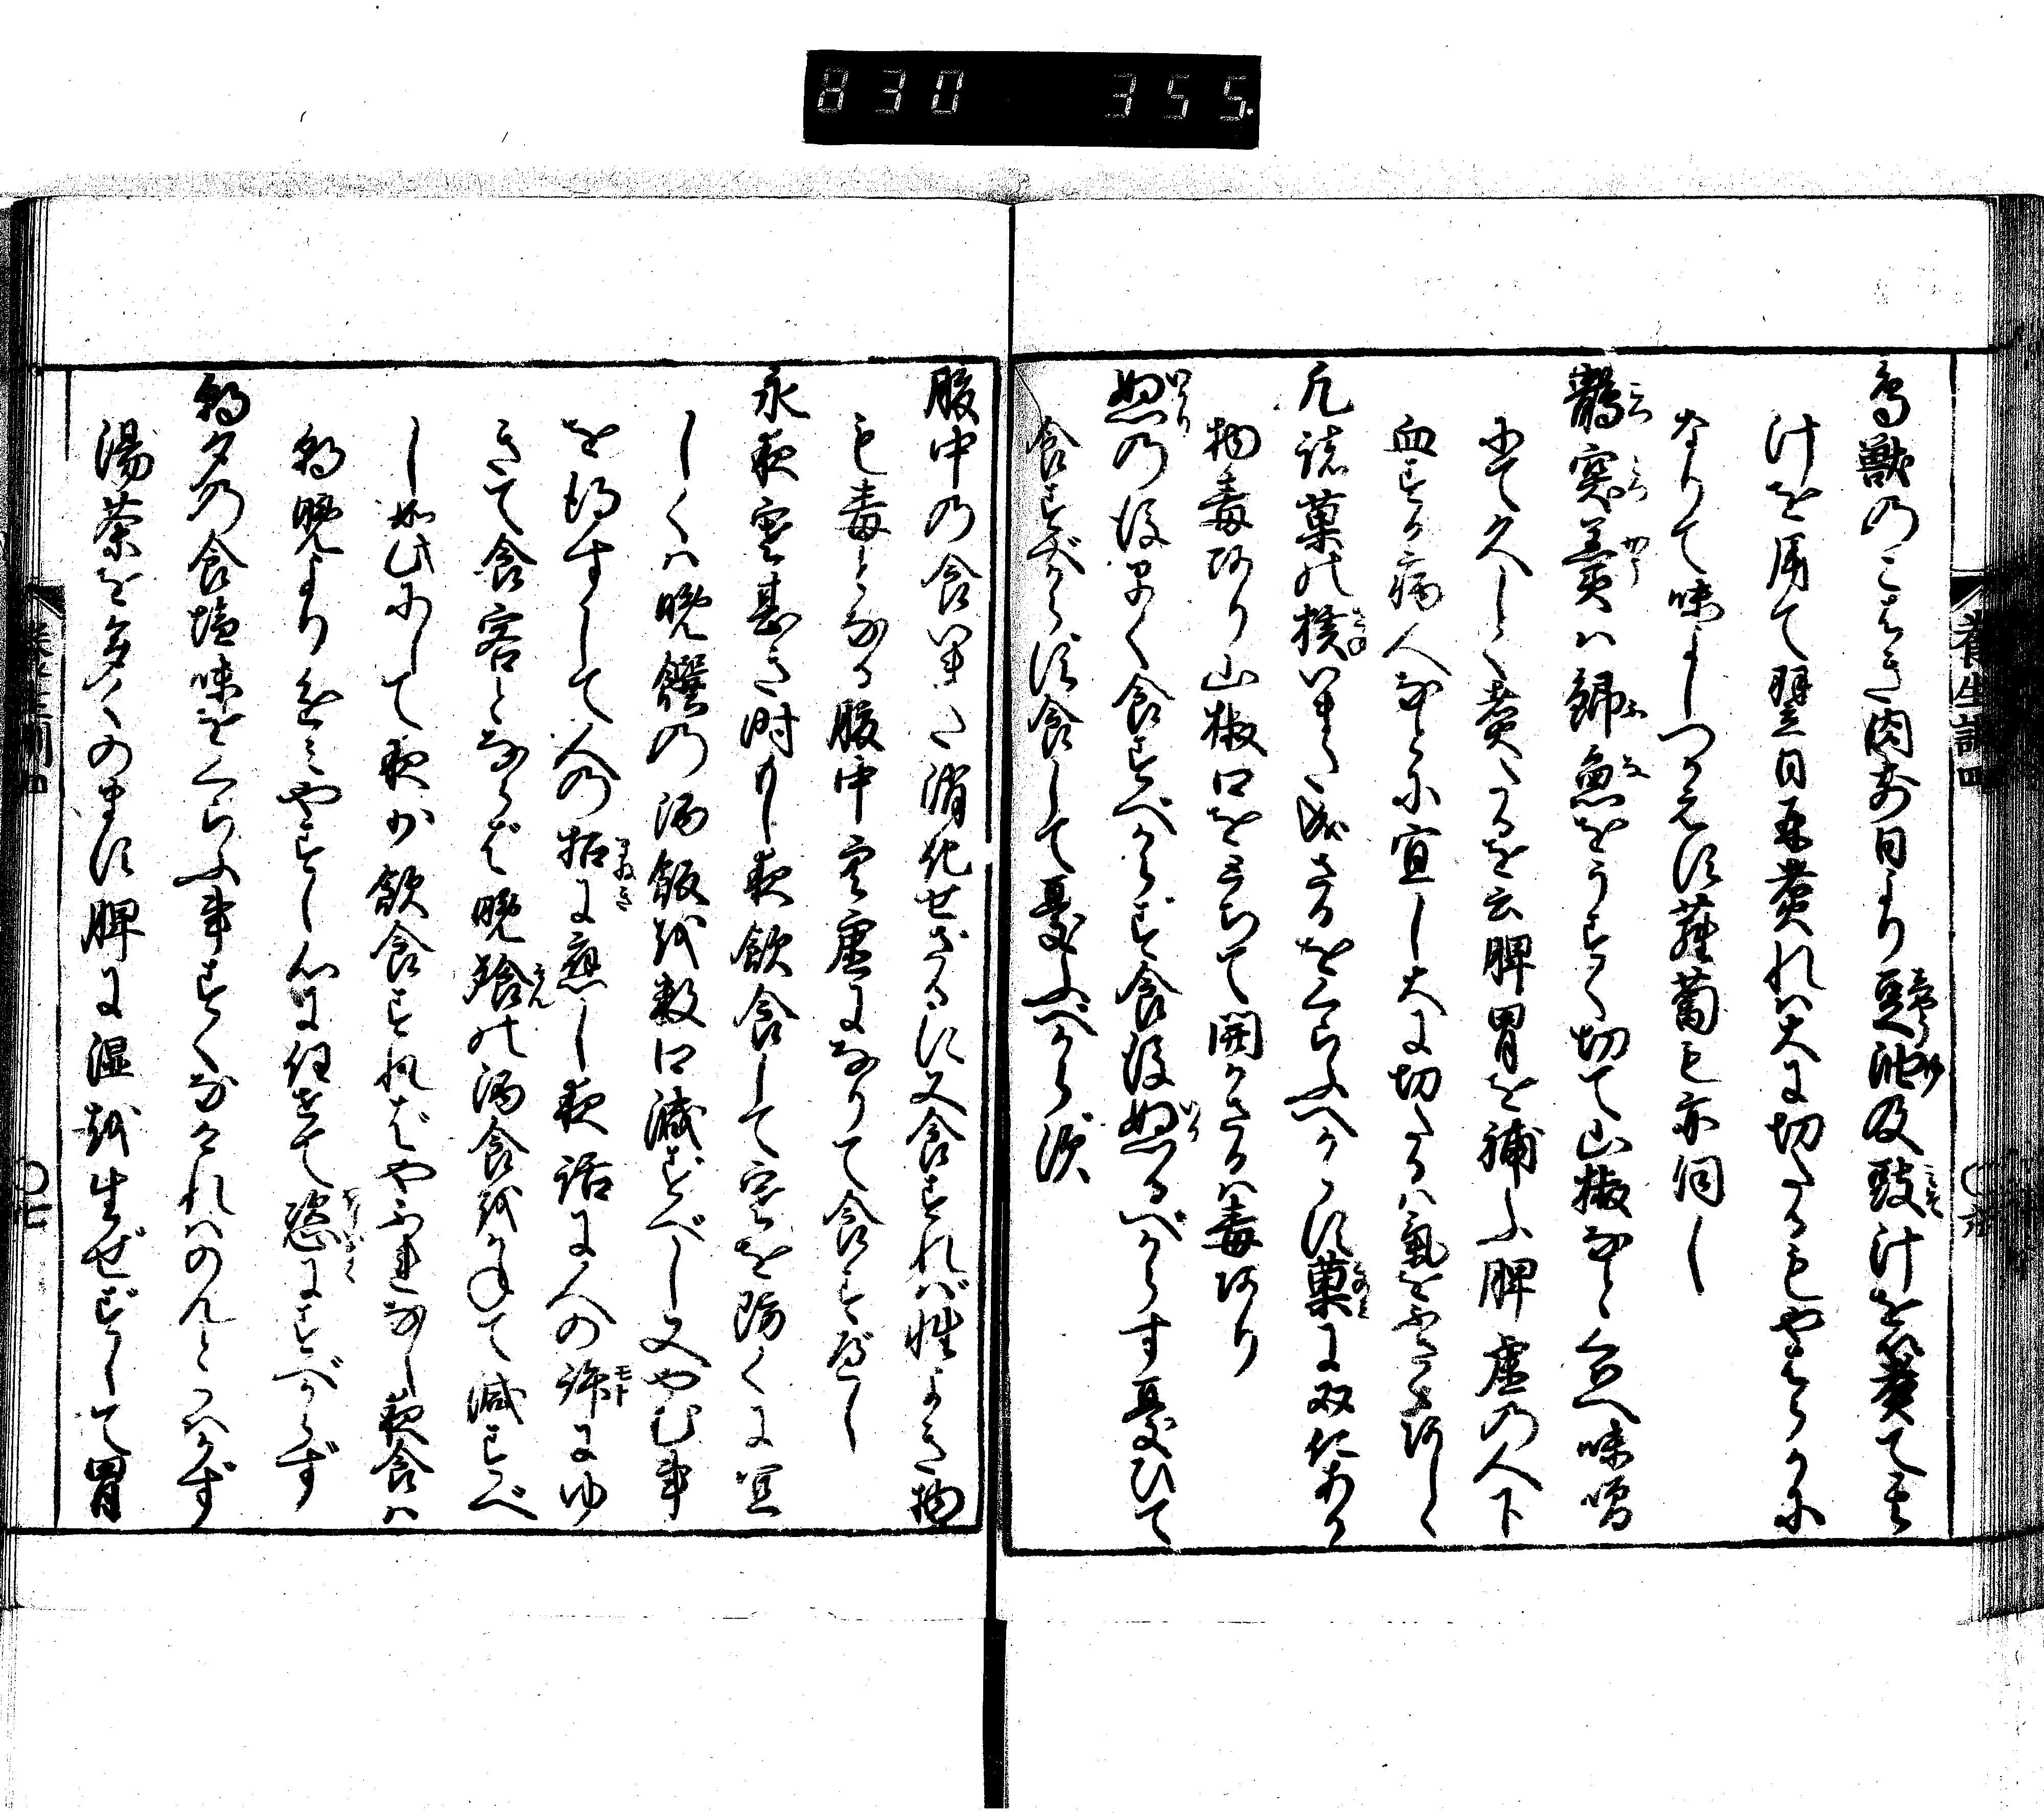 830 355.
養生訓四
○六
鳥獣のこはき肉前日より豆油及豉汁を以煮て其
汁を用て翌日再煮れハ大に切たるもやはらかに
なりて味よしつかえす蘿蔔も亦同し
鶻突羹ハ鯽魚をうすく切て山椒なと合へ味噌
にて久しく煮たるを云脾胃を補ふ脾虚の人下
血する病人なとに宜し大に切たるハ氣をふさきあしく
凡諸菓の核いまた成さるをくらふへからす菓に双仁ある
物毒あり山椒口をとちて開かさるハ毒あり
怒の後早く食すべからず食後怒るべからす憂ひて
食すべからす食して憂ふべからず
腹中の食いまた消化せざるに又食すれバ性よき物
も毒となる腹中空虚になりて食すべし
永夜寒甚き時もし夜飲食して寒を防くに宜
しくハ晩饌の酒飯を数口減ずべし又やむ事
を得すして人の招に應し夜話に人の許にゆ
きて食客とならば晩飱の酒食をかねて減すべ
し如此にして夜少飲食すればやふれなし夜食ハ
朝晩より進みやすし心に任せて恣にすべからず
朝夕の食塩味をくらふ事すくなけれハのんとかハかず
湯茶を多くのまず脾に湿を生ぜずして胃
養生訓四
○七